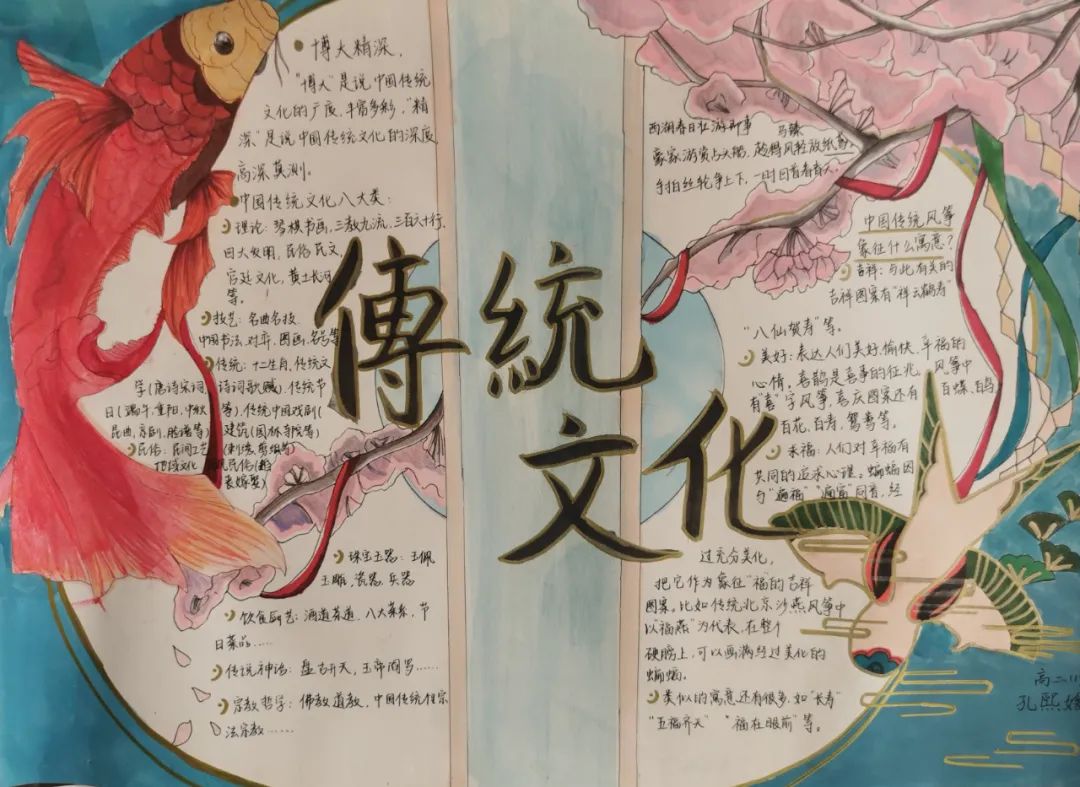 傳統
文化
博大精深，
"博大"是说中国传统
文化的广度、丰富多彩，"精
深"是说中国传统文化的深度，
高深莫测。
中国传统文化八大类：
理论：琴棋书画，三教九流，三百六十行，
四大发明，民俗民文，
宫廷文化，黄土长河
等。
技艺：名曲名技
中国书法，对弈，图画，名号等
传统：十二生肖，传统文
学（唐诗宋词，诗词歌赋），传统节
日（端午，重阳，中秋等），传统中国戏剧（
昆曲，京剧，脸谱等）建筑（园林寺院等）
民俗：民间工艺（刺绣，剪纸等）
民俗（婚
丧嫁娶）
珠宝玉器：玉佩
玉雕，瓷器，兵器
饮食厨艺：酒道茶道，八大菜系，节
日菜的……
传说神话：盘古开天，玉帝阎罗……
宗教哲学：佛教道教，中国传统
法宗教……
西湖春日壮游即事 马臻
豪家游赏占头船，趁得风轻放纸鸢
手拍丝轮争上下，一时回首看青天。
中国传统风筝
象征什么寓意？
吉祥：与此有关的
吉祥图案有"祥云鹤寿"
"八仙贺寿"等。
美好：表达人们美好、愉快、幸福的
心情，喜鹊是喜事的征兆，风筝中
有"喜"字风筝，喜庆图案还有百蝶、百鸟
百花，百寿，鸳鸯等。
求福：人们对幸福有
共同的追求心理。蝙蝠因
与"遍福""遍富"同音，经
过充分美化，
把它作为象征"福"的吉祥
图案。比如传统北京沙燕风筝中
以"福燕"为代表，在整个
硬膀上，可以画满经过美化的
蝙蝠。
类似的寓意还有很多，如"长寿"
"五福齐天" "福在眼前"等。
高二11
孔熙